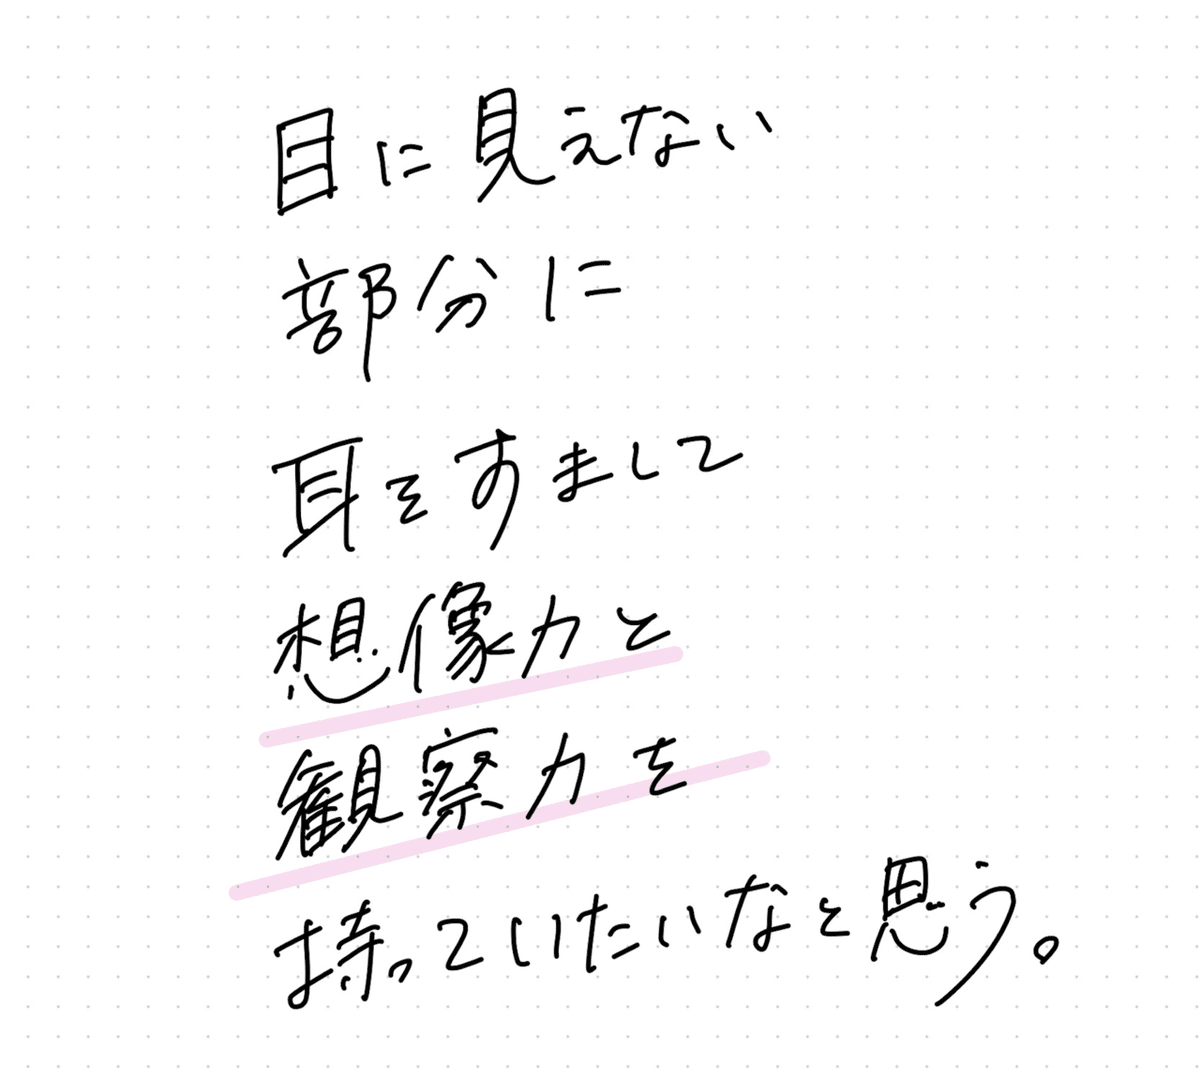 目に見えない
部分に
耳をすまして
想像力と
観察力を
持っていたいなと思う。